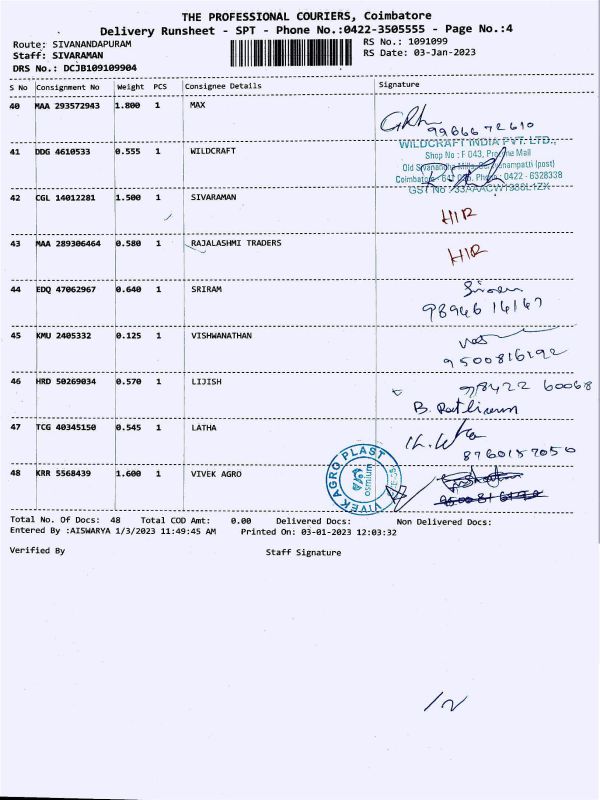 THE PROFESSIONAL COURIERS, Coimbatore
Delivery Runsheet - SPT - Phone No.:0422-3505555 - Page No.:4
Route: SIVANANDAPURAM RS No.: 1091099
Staff: SIVARAMAN RS Date: 03-Jan-2023
DRS No.: DCJB109109904
S No Consignment No Weight PCS Consignee Details Signature
40 MAA 293572943 1.800 1 MAX
9966672610
41 DDG 4610533 0.555 1 WILDCRAFT
WILDCRAFT INDIA PVT. LTD.,
Shop No : F 043, Mall
Old Sivanandha Mills,
Coimbatore - 0422 - 6328338
GST No
42 CGL 14012281 1.500 1 SIVARAMAN
HIR
43 MAA 289306464 0.580 1 RAJALASHMI TRADERS
HIR
44 EDQ 47062967 0.640 1 SRIRAM
9894616167
45 KMU 2405332 0.125 1 VISHWANATHAN
9500816192
46 HRD 50269034 0.570 1 LIJISH
98422 60068
47 TCG 40345150 0.545 1 LATHA
8760157050
48 KRR 5568439 1.600 1 VIVEK AGRO
VIVEK AGRO PLAST
osmium
Total No. Of Docs: 48 Total COD Amt: 0.00 Delivered Docs: Non Delivered Docs:
Entered By :AISWARYA 1/3/2023 11:49:45 AM Printed On: 03-01-2023 12:03:32
Verified By Staff Signature